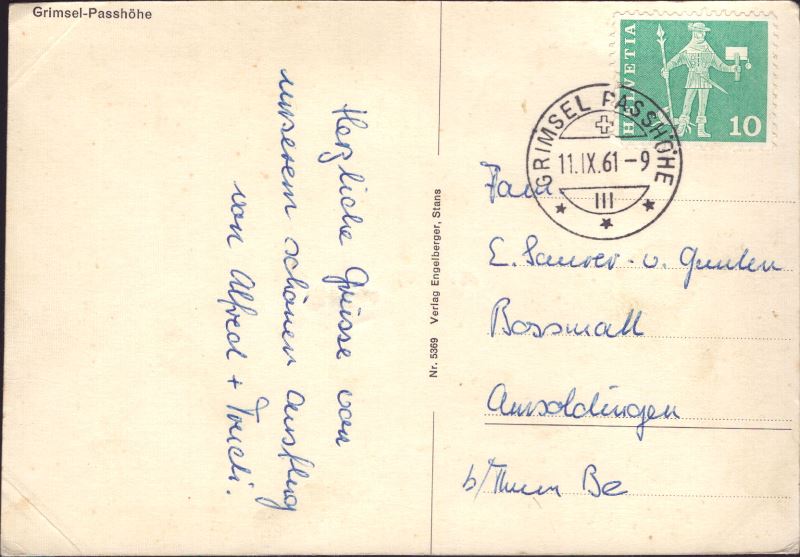 Grimsel-Passhöhe
Herzliche Grüsse von
unserem schönen Ausflug
von Alfred + Trudi.
Nr. 5369 Verlag Engelberger, Stans
HELVETIA
10
GRIMSEL PASSHÖHE
11.IX.61-9
III
Fam
E. Saurer-v. Gunten
Bossmatt
Amsoldingen
b/Thun Be